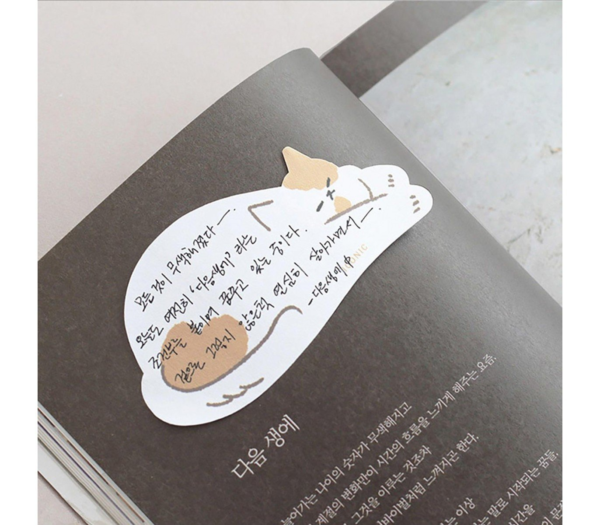 모든 것이 무색해졌다 —.
오늘도 여전히 '다음생에' 라는
조건부를 붙이며 꿈꾸고 있는 중이다.
겉으로 그렇지 않은척 열심히 살아가면서 —.
- 다음생에 中
ICONIC
다음 생에
늘어가는 나이의 숫자가 무색해지고
계절의 변화만이 시간의 흐름을 느끼게 해주는 요즘.
그것을 이루는 것조차
느껴지곤 한다.
이상
말로 시작되는 꿈들,